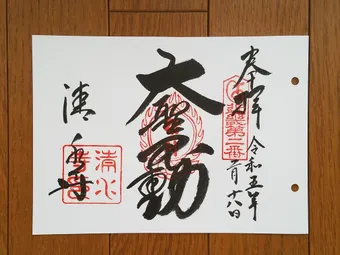 奉拝
令和五年
月十八日
第二番
大聖不動
清水寺
清水